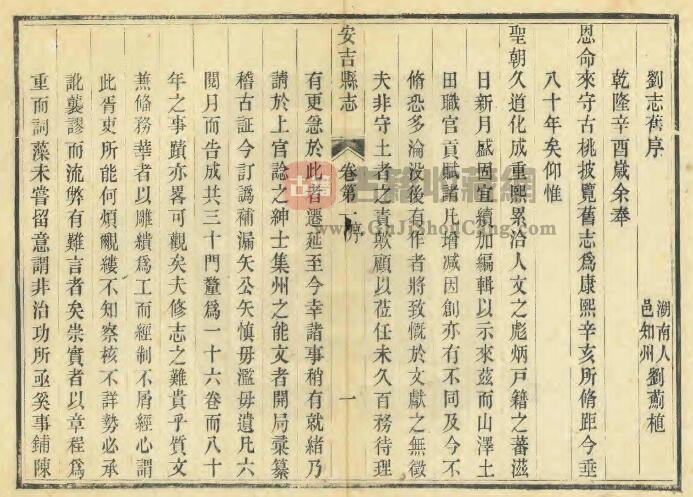 劉志舊序
湖南人
邑知州劉薊植
乾隆辛酉歲余奉
恩命來守古桃披覽舊志爲康熙辛亥所脩距今垂
八十年矣仰惟
聖朝久道化成重熙累洽人文之彪炳戸籍之蕃滋
日新月盛固宜續加編輯以示來茲而山澤土
田職官貢賦諸凡增減因創亦有不同及今不
脩恐多淪没後有作者將致慨於文獻之無徵
夫非守土者之責歟顧以莅任未久百務待理
安吉縣志
卷第一
序
一
有更急於此者遷延至今幸諸事稍有就緒乃
請於上官諗之紳士集州之能文者開局彚纂
稽古証今訂譌補漏矢公矢慎毋濫毋遺凡六
閲月而告成共三十門釐爲一十六卷而八十
年之事蹟亦畧可觀矣夫修志之難貴乎質文
兼脩務華者以雕繢爲工而經制不屑經心謂
此胥吏所能何煩覼縷不知察核不詳勢必承
訛襲謬而流弊有難言者矣崇實者以章程爲
重而詞藻未嘗留意謂非治功所亟奚事鋪陳
古籍收藏網
www.GuJiShouCang.com